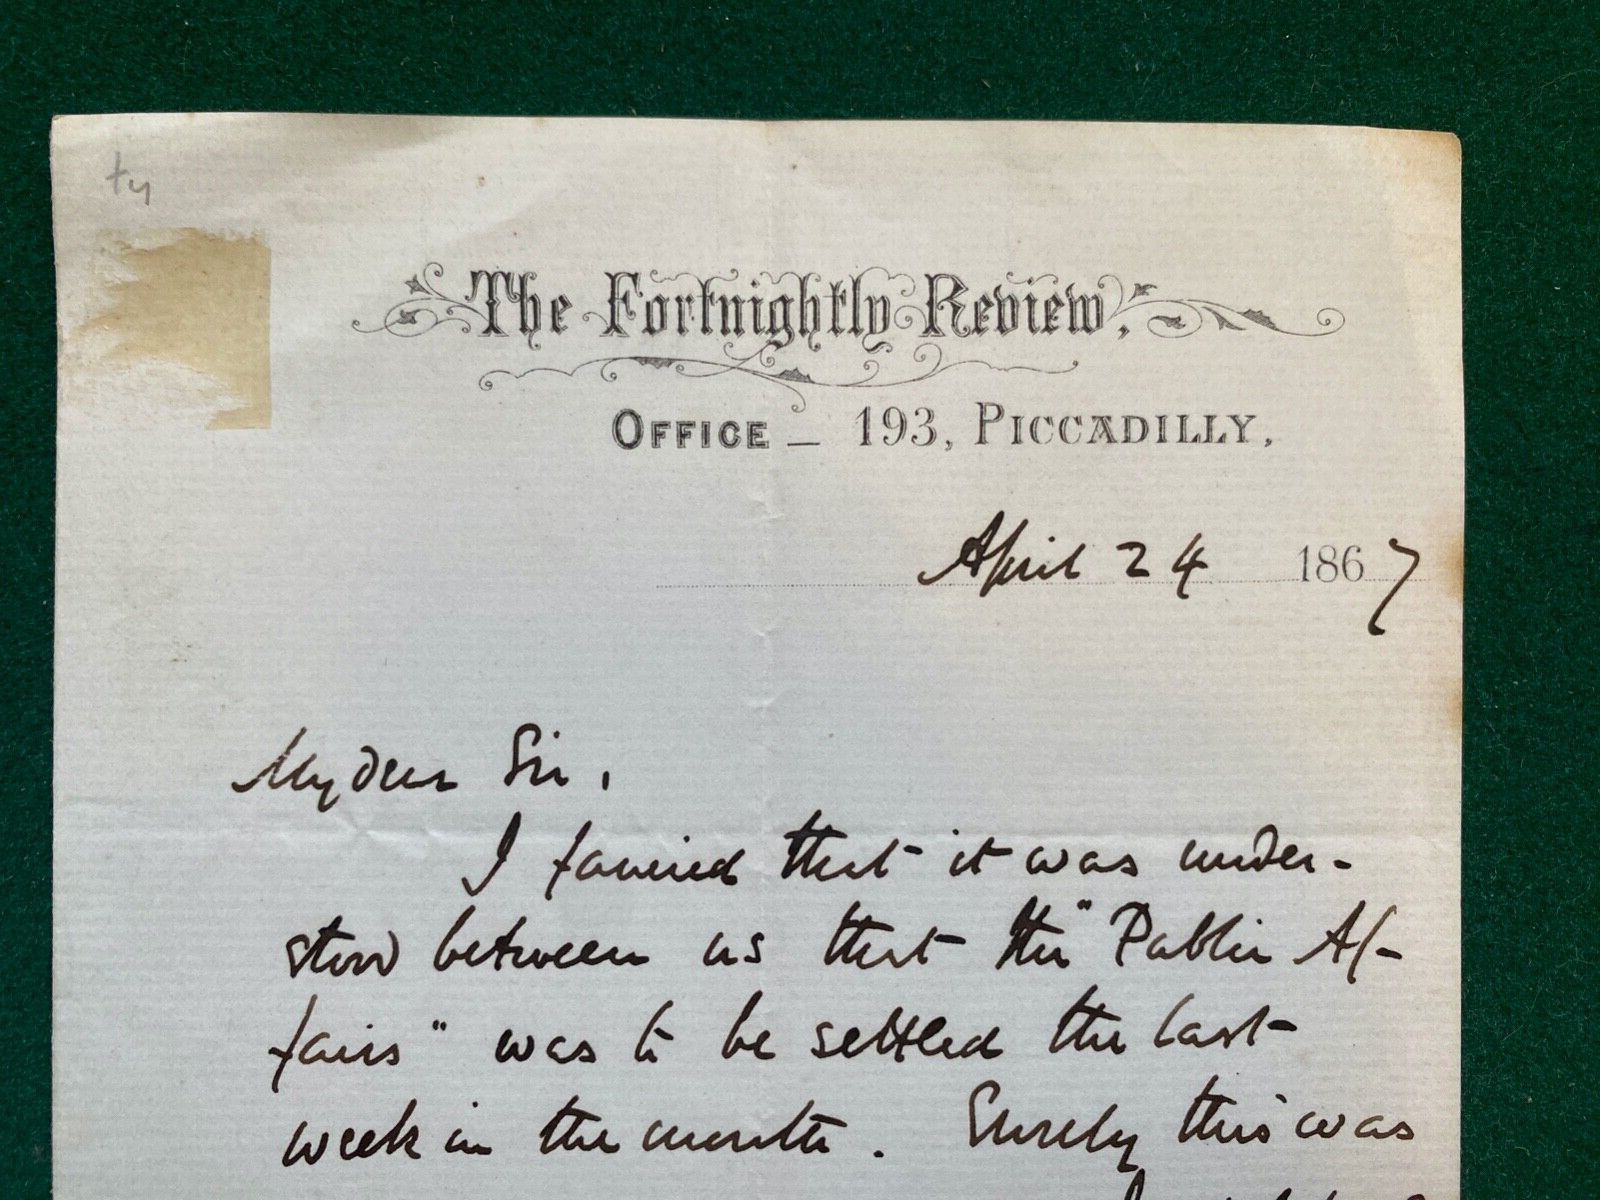 The Fortnightly Review,
OFFICE – 193, PICCADILLY,
April 24 1867
My dear Sir,
I fancied that it was under-
stood between us that the "Public Af-
fairs" was to be settled the last
week in the month. Surely this was